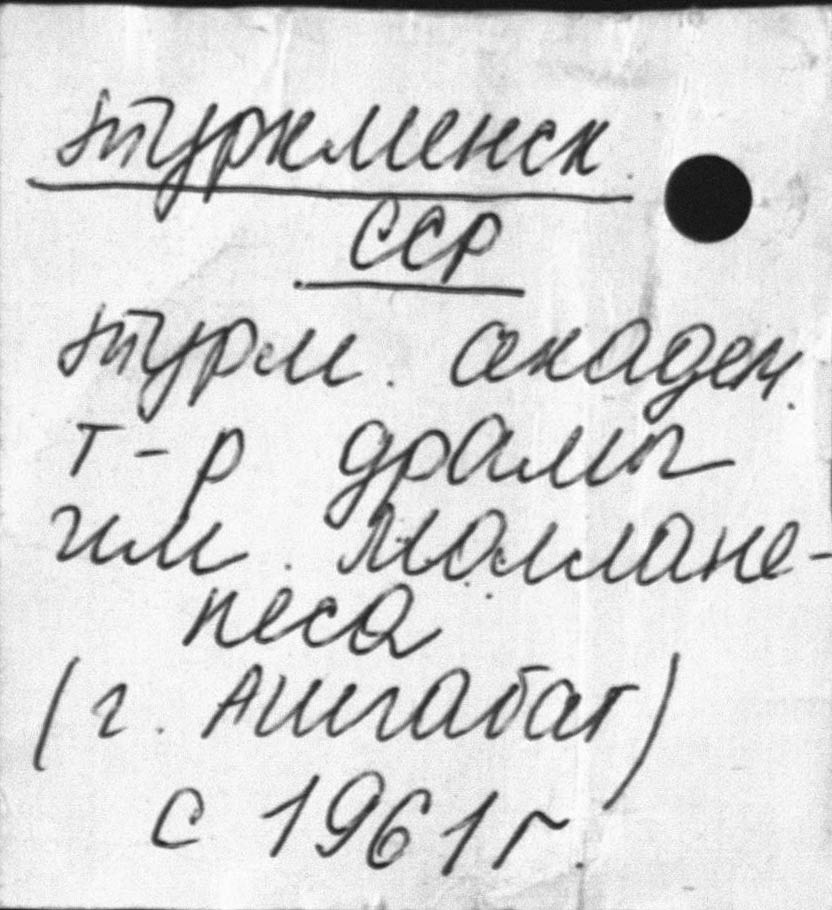 Туркменск.
ССР
Турм. академ.
т-р драмы
им. Моллане-
песа
(г. Ашгабат)
с 1961г.